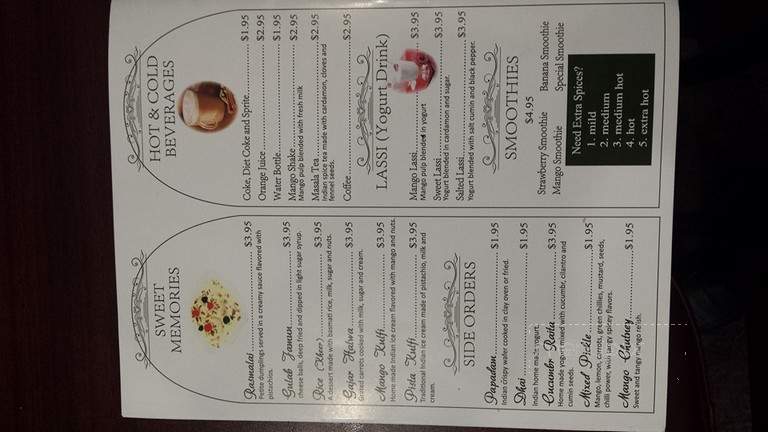 SWEET
MEMORIES
Rasmalai $3.95
Petite dumplings served in a creamy sauce flavored with
pistachios.
Gulab Jamun $3.95
cheese balls, deep fried and dipped in light sugar syrup.
Rice (Kheer) $3.95
A dessert made with basmati rice, milk, sugar and nuts.
Gajar Halwa $3.95
Grated carrots cooked with milk, sugar and cream.
Mango Kulfi $3.95
Home made Indian ice cream flavored with mango and nuts.
Pista Kulfi $3.95
Traditional Indian ice cream made of pistachio, milk and
cream.
SIDE ORDERS
Papadam $1.95
Indian crispy wafer cooked in clay oven or fried.
Dhai $1.95
Indian home made yogurt.
Cucumbr Raita $3.95
Home made yogurt mixed with cucumbr, cilantro and
cumin seeds.
Mixed Pickle $1.95
Mango, lemon, carrots, green chillies, mustard, seeds,
chili power, with tangy spicey flavors.
Mango Chutney $1.95
Sweet and tangy mango relish.
HOT & COLD
BEVERAGES
Coke, Diet Coke and Sprite $1.95
Orange Juice $2.95
Water Bottle $1.95
Mango Shake $2.95
Mango pulp blended with fresh milk
Masala Tea $2.95
Indian spice tea made with cardamon, cloves and
fennel seeds.
Coffee $2.95
LASSI (Yogurt Drink)
Mango Lassi $3.95
Mango pulp blended in yogurt
Sweet Lassi $3.95
Yogurt blended in cardamon and sugar.
Salted Lassi $3.95
Yogurt blended with salt cumin and black pepper.
SMOOTHIES
$4.95
Strawberry Smoothie Banana Smoothie
Mango Smoothie Special Smoothie
Need Extra Spices?
1. mild
2. medium
3. medium hot
4. hot
5. extra hot